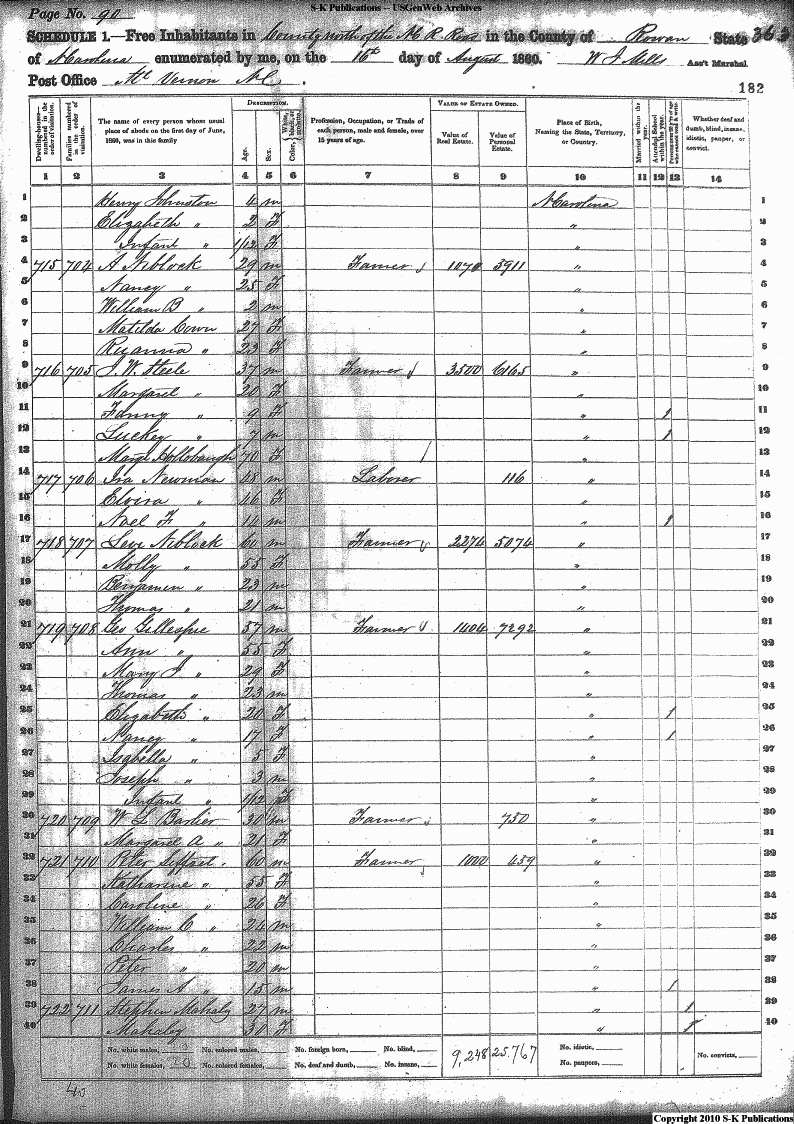 S-K Publications -- USGenWeb Archives
Page No. 90
SCHEDULE 1.—Free Inhabitants in County north of the N C R Road in the County of Rowan State 363
of N Carolina enumerated by me, on the 16th day of August 1860. W J Mills Ass't Marshal
Post Office Mt Vernon N.C.
182
Dwelling-houses—numbered in the order of visitation.
Families numbered in the order of visitation.
The name of every person whose usual place of abode on the first day of June, 1860, was in this family
DESCRIPTION.
Age.
Sex.
Color, White, black, or mulatto.
Profession, Occupation, or Trade of each person, male and female, over 15 years of age.
VALUE OF ESTATE OWNED.
Value of Real Estate.
Value of Personal Estate.
Place of Birth, Naming the State, Territory, or Country.
Married within the year.
Attended School within the year.
Whether deaf and dumb, blind, insane, idiotic, pauper, or convict.
1 2 3 4 5 6 7 8 9 10 11 12 13 14
1 Henry Johnston 4 m N Carolina 1
2 Elizabeth " 2 F " 2
3 Infant " 1/12 F " 3
4 715 704 A Niblock 29 m Farmer 1070 3911 " 4
5 Nancy " 25 F " 5
6 William B " 2 m " 6
7 Matilda Cowan 27 F " 7
8 " 23 F " 8
9 716 705 J. W. Steele 37 m Farmer 3500 6165 " 9
10 Margaret " 20 F " 10
11 Fanny " 9 F " 1 11
12 Luckey " 7 m " 1 12
13 Hollobaugh 70 F / " 13
14 717 706 Ira Newman 48 m Laborer 116 " 14
15 Elvira " 46 F " 15
16 Noel F " 14 m " 1 16
17 718 707 Levi Niblock 60 m Farmer 2274 5074 " 17
18 Molly " 55 F " 18
19 Benjamin " 23 m " 19
20 Thomas " 21 m " 20
21 719 708 Geo Gillespie 57 m Farmer 1404 7292 " 21
22 Ann " 55 F " 22
23 Mary J " 29 F " 23
24 Thomas " 23 m " 24
25 Elizabeth " 20 F " 1 25
26 Nancy " 17 F " 1 26
27 Isabella " 5 F " 27
28 Joseph " 3 m " 28
29 Infant " 1/12 F " 29
30 720 709 W L Barber 30 m Farmer 750 " 30
31 Margaret A " 21 F " 31
32 721 710 Peter 60 m Farmer 1000 459 " 32
33 Katharine " 55 F " 33
34 Caroline " 26 F " 34
35 William C " 24 m " 35
36 Charles " 22 m " 36
37 Peter " 20 m " 37
38 James A " 15 m " 1 38
39 722 711 Stephen Mahaly 27 m " 1 39
40 Mahaley 30 F " 1 40
No. white males, No. colored males, No. foreign born, No. blind, 9,248 25.767 No. idiotic, No. convicts,
No. white females, 20 No. colored females, No. deaf and dumb, No. insane, No. paupers,
40
Copyright 2010 S-K Publications